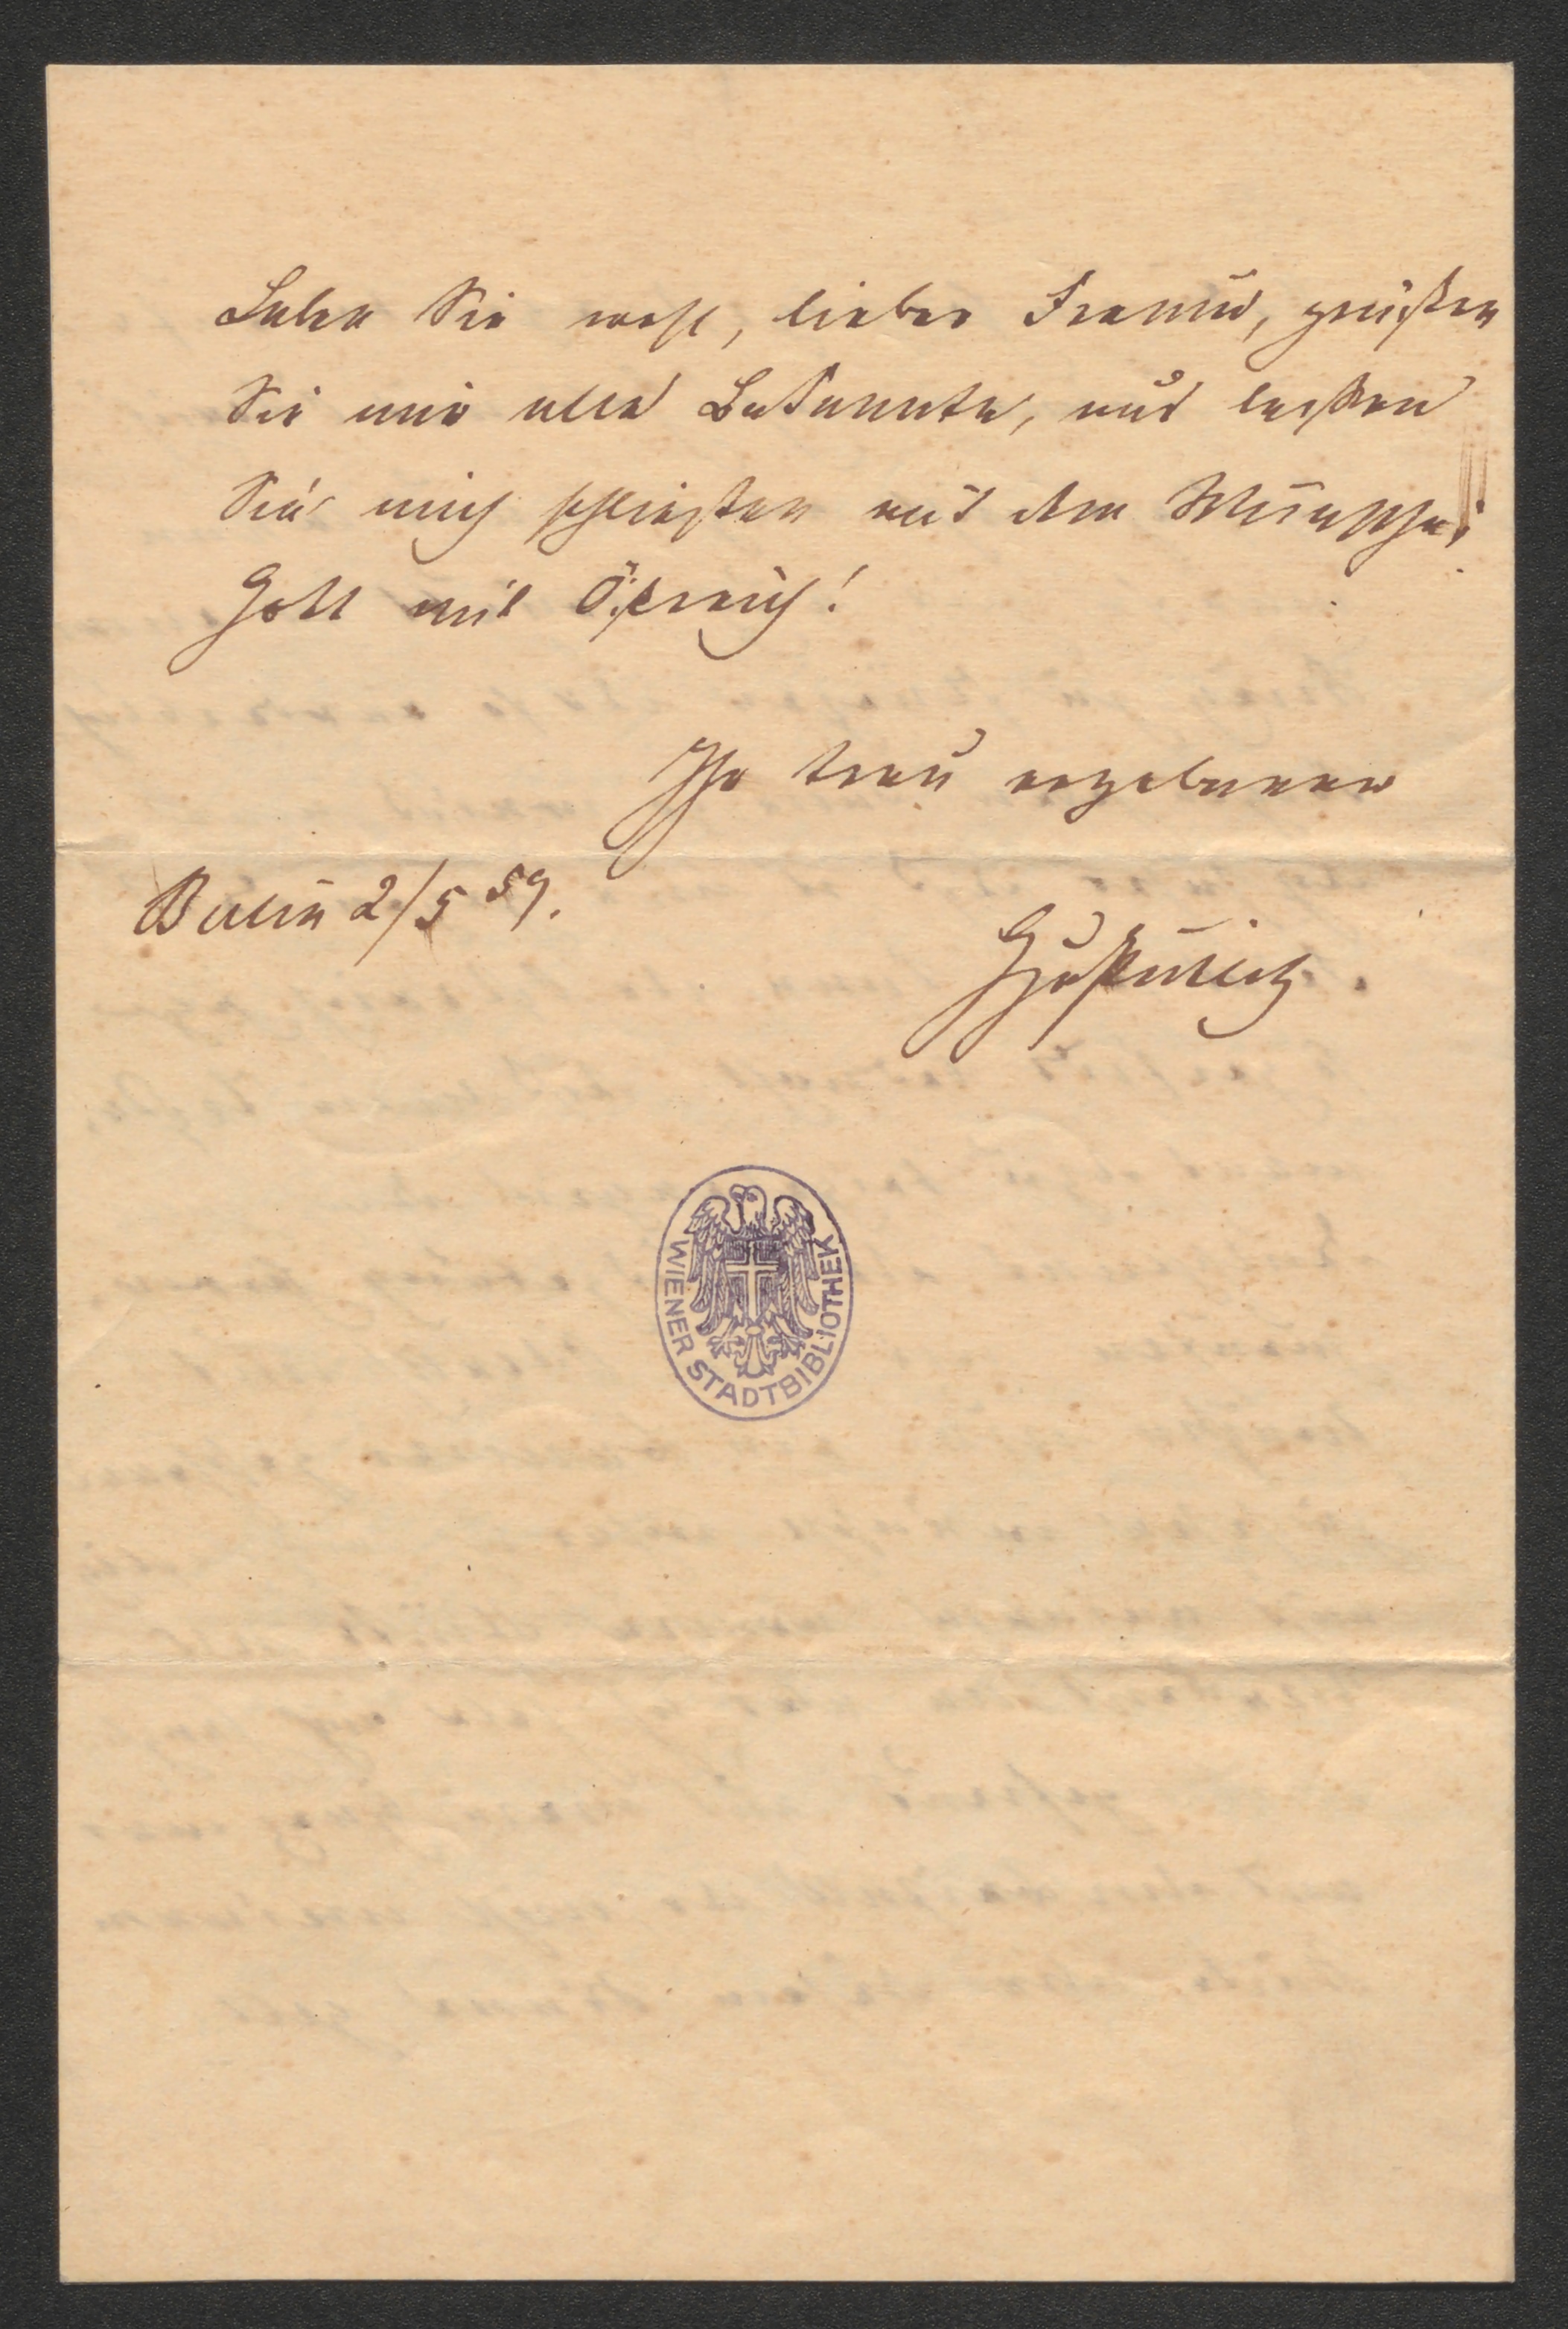 Leben Sie wohl, lieber Freund, grüßen
Sie mir alle Bekannte, und laßen
Sie mich schließen mit dem Wunsche:
Gott mit Östreich!
Ihr treu ergebener
Berlin 2/5 59.
WIENER STADTBIBLIOTHEK